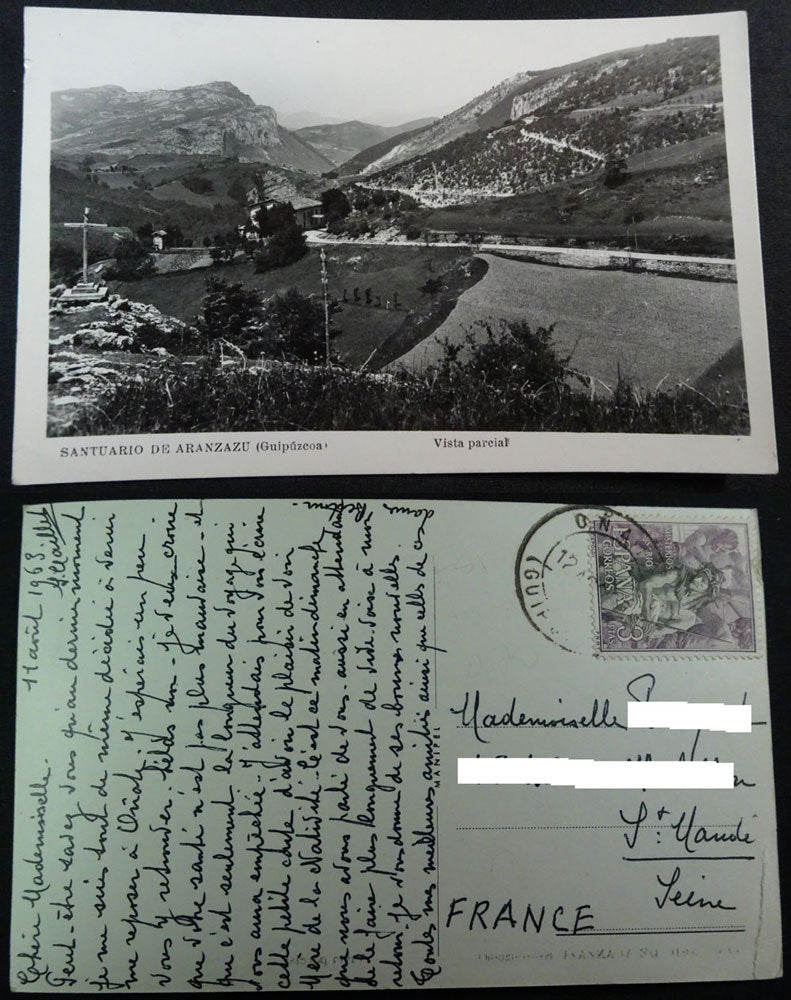 SANTUARIO DE ARANZAZU (Guipúzcoa) Vista parcial
11 août 1963.
Chère Mademoiselle.
Peut-être savez vous qu'au dernier moment
je me suis tout de même décidée à venir
me reposer à Oñate, j'espérais un peu
vous y retrouver, hélas non. Je veux croire
que votre santé n'est pas plus mauvaise. et
que c'est seulement la longueur du voyage qui
vous aura empêchée. J'attendais pour vous écrire
cette petite carte d'avoir le plaisir de voir
Mère de la Nativité. C'est ce matin dimanche
que nous avons parlé de vous. aussi en attendant
de le faire plus longuement de vive-voix à mon
retour. je vous donne de ses bonnes nouvelles.
Toutes mes meilleures amitiés ainsi que celles de ces
dames
MANIPEL
OÑA
(GUI
12
ESPAÑA
CORREOS
3
PTAS
Mademoiselle
St: Mandé
Seine
FRANCE